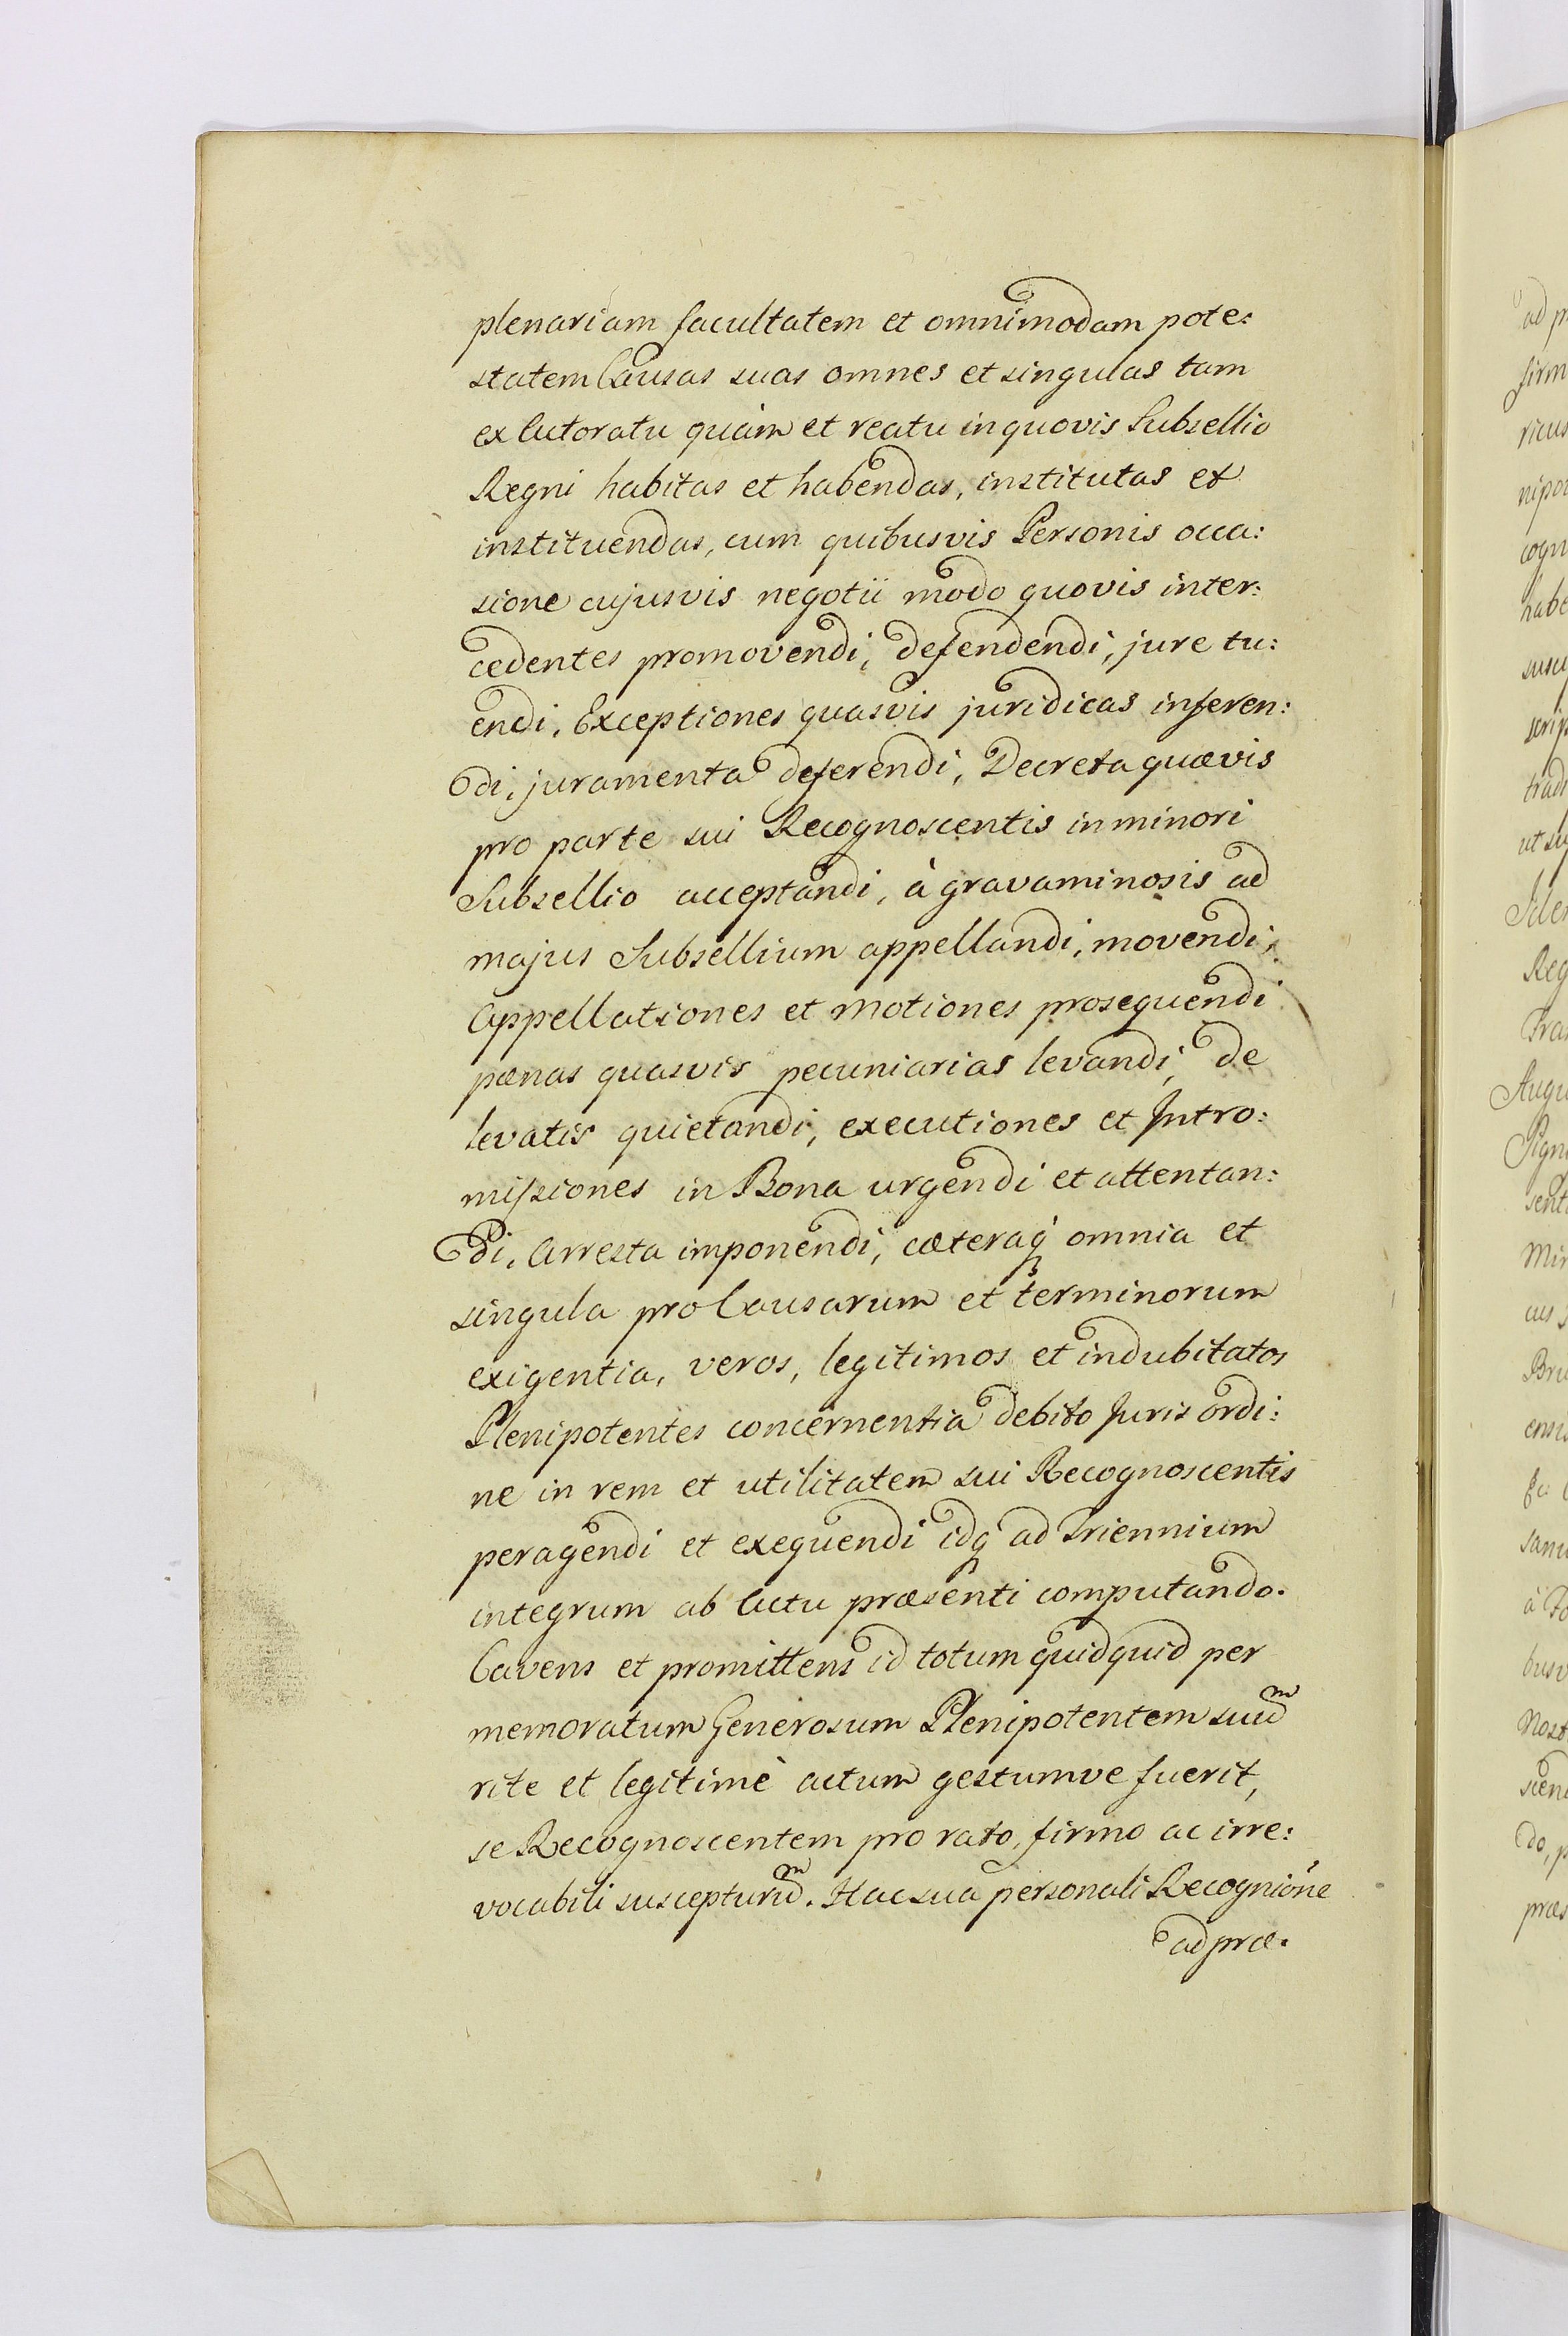 plenariam facultatem et omnimodam pote:
statem Causas suas omnes et singulas tam
ex Actoratu quàm et reatu in quovis Subsellio
Regni habitas et habendas, institutas et
instituendas, cum quibusvis Personis occa:
sione cujusvis negotii modo quovis inter:
cedentes promovendi, defendendi, jure tu:
endi, Exceptiones quasvis juridicas inferen:
di, juramenta deferendi, Decreta quævis
pro parte sui Recognoscentis in minori
Subsellio acceptandi, à gravaminosis ad
majus Subsellium appellandi, movendi,
Appellationes et motiones prosequendi
pœnas quasvis pecuniarias levandi, de
levatis quietandi, executiones et Intro:
missiones in Bona urgendi et attentan:
di, Arresta imponendi, cæteraq; omnia et
singula pro Causarum et terminorum
exigentia, veros, legitimos et indubitatos
Plenipotentes concernentia debito Juris ordi:
ne in rem et utilitatem sui Recognoscentis
peragendi et exequendi idq; ad Triennium
integrum ab Actu præsenti computando.
Cavens et promittens id totum quidquid per
memoratum Generosum Plenipotentem suum
rite et legitimè actum gestumve fuerit,
se Recognoscentem pro rato, firmo ac irre:
vocabili suscepturum. Hac sua personali Recognióne
ad præ.
ad p
firm
ricus
nipo
cogn
habe
susce
scrip
tradi
ut su
Iden
Reg
Fra
Augu
Sign
senti
Mir
cus
Bru
ensis
sanu
à Fo
busv
Nost
scen
do, p
præs